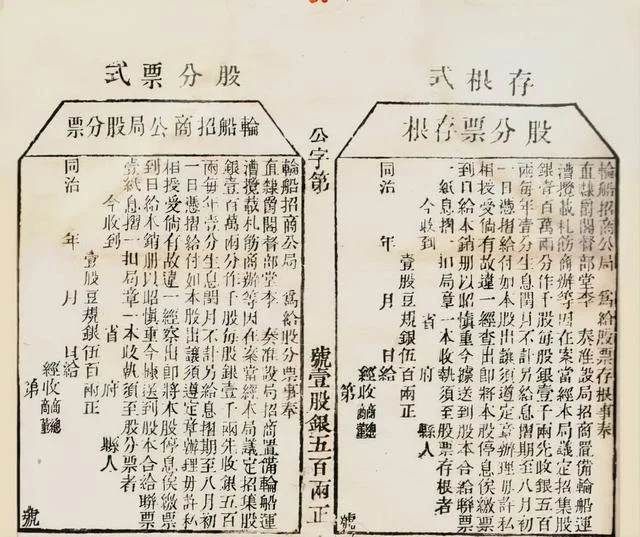 存根式
股分票存根
輪船招商公局　為給股票存根事奉
直隸爵閣督部堂李　奏准設局招商置備輪船運
漕攬載札飭商辦等因在案當經本局議定招集股
銀壹百萬兩分作千股每股銀壹千兩先收銀五百
兩每年壹分生息閏月不計另給息摺期至八月初
一日憑摺給付如本股出讓須遵定章辦理毋許私
相授受倘有故違一經查出即將本股停息俟繳票
到日給本銷册以昭慎重今據送到股本合給聯票
一紙息摺一扣局章一本收執須至股票存根者
今收到　省　府　縣人
壹股豆規銀伍百兩正
同治　年　月　日給
經收商總董
第　號
公字第　號壹股銀五百兩正
股分票式
輪船招商公局股分票
輪船招商公局　為給股分票事奉
直隸爵閣督部堂李　奏准設局招商置備輪船運
漕攬載札飭商辦等因在案當經本局議定招集股
銀壹百萬兩分作千股每股銀壹千兩先收銀五百
兩每年壹分生息閏月不計另給息摺期至八月初
一日憑摺給付如本股出讓須遵定章辦理毋許私
相授受倘有故違一經察出即將本股停息俟繳票
到日給本銷册以昭慎重今據送到股本合給聯票
壹紙息摺一扣局章一本收執須至股分票者
今收到　省　府　縣人
壹股豆規銀伍百兩正
同治　年　月　日給
經收商總董
第　號